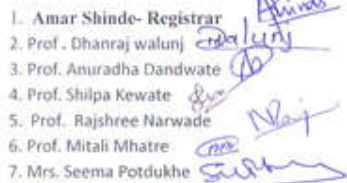 1. Amar Shinde- Registrar
2. Prof . Dhanraj walunj
3. Prof. Anuradha Dandwate
4. Prof. Shilpa Kewate
5. Prof. Rajshree Narwade
6. Prof. Mitali Mhatre
7. Mrs. Seema Potdukhe